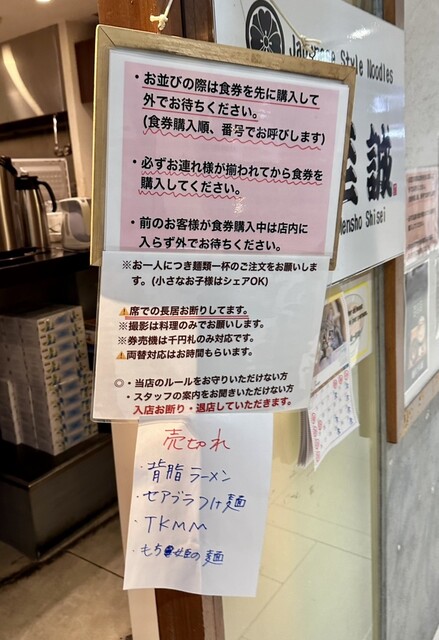 Japanese Style Noodles
誠
Mensho Shisei
・お並びの際は食券を先に購入して
外でお待ちください。
(食券購入順、番号でお呼びします)
・必ずお連れ様が揃われてから食券を
購入してください。
・前のお客様が食券購入中は店内に
入らず外でお待ちください。
※お一人につき麺類一杯のご注文をお願いしま
す。(小さなお子様はシェアOK)
⚠席での長居お断りしてます。
※撮影は料理のみでお願いします。
※券売機は千円札のみ対応です。
⚠両替対応はお時間もらいます。
◎・当店のルールをお守りいただけない方
・スタッフの案内をお聞きいただけない方
入店お断り・退店していただきます。
売切れ
・背脂ラーメン
・セアブラつけ麺
・TKMM
・もち姫の麺